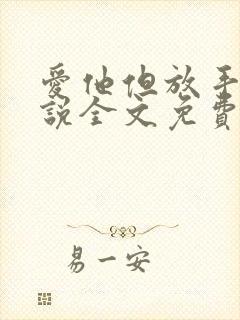 愛他但放手
說全文免費
易一安